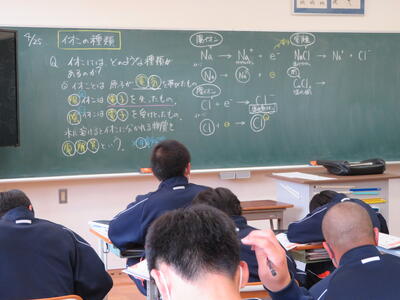 4/25
イオンの種類
Q イオンには、どのような種類が
あるのか?
◎イオンとは 原子が電気を帯びたもの
陽イオンは電子を失ったもの。
陰イオンは電子を受けとったもの。
水に溶けるとイオンに分かれる物質を
電解質という。
陽イオン
Na → Na⁺ + e⁻
Na → Na⁺ + ⊖
陰イオン
Cl + e⁻ → Cl⁻
Cl + ⊖ → Cl
電離
NaCl → Na⁺ + Cl⁻
CuCl₂ →